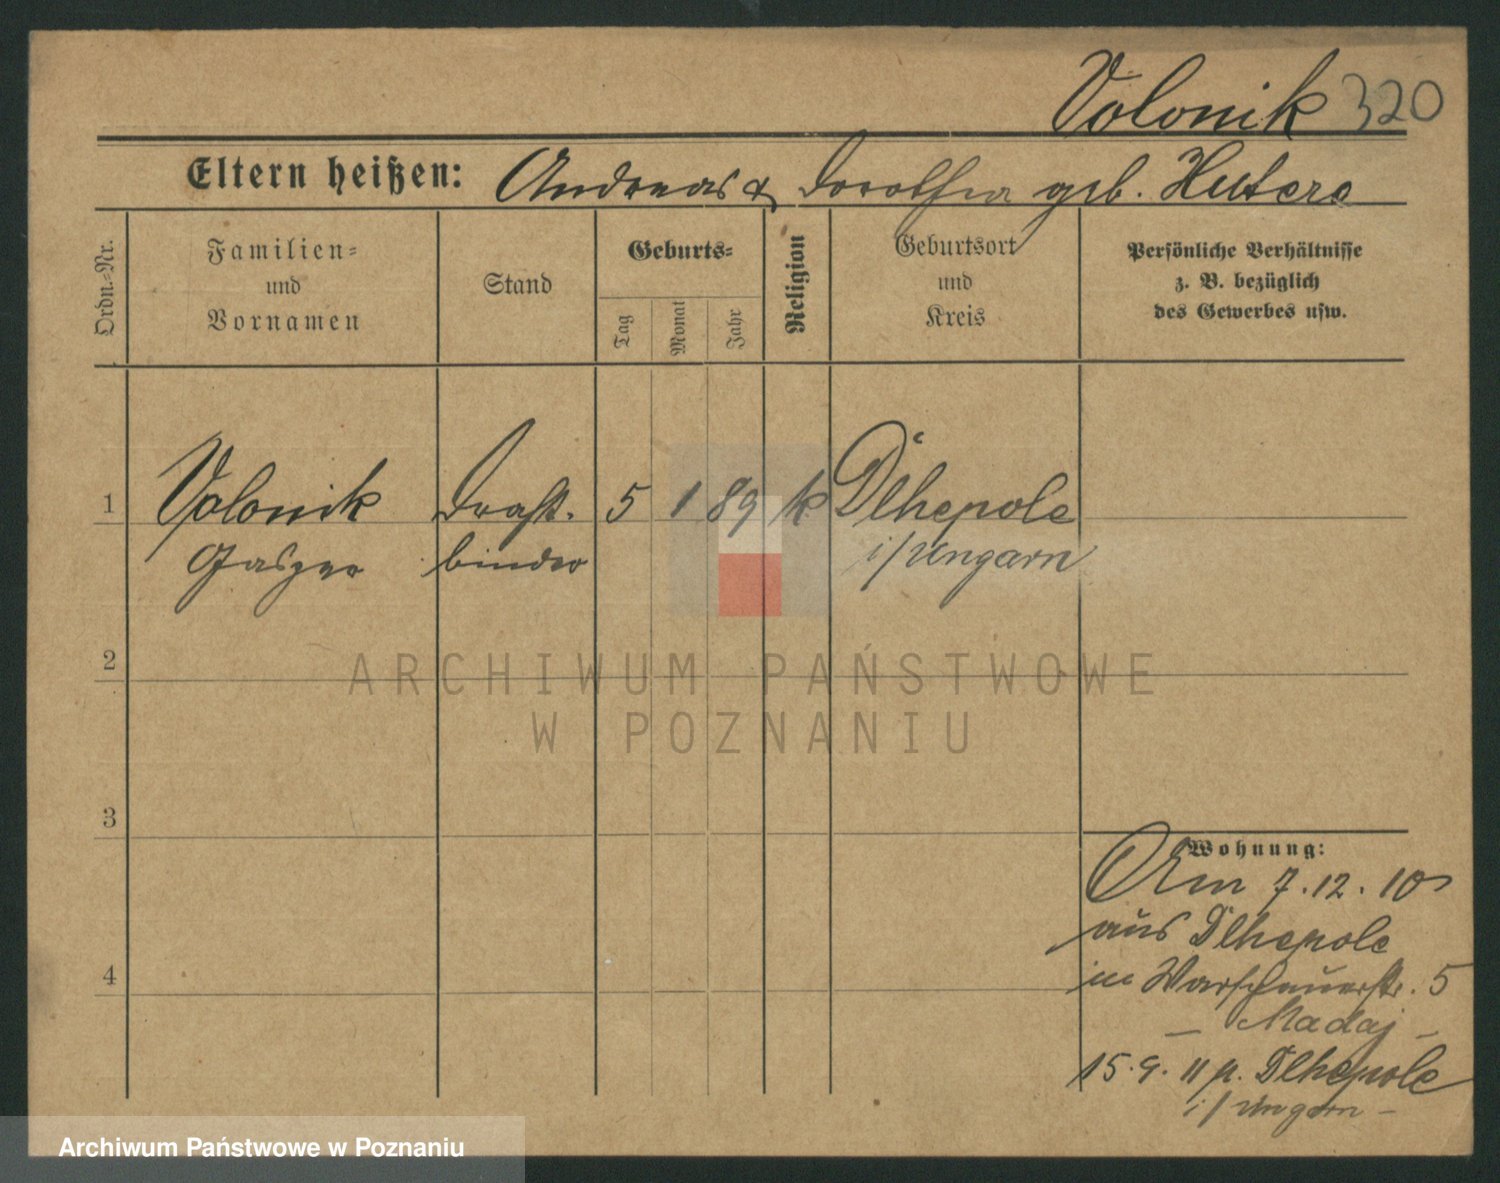 Volonik 320
Eltern heißen: Andreas & Dorothea geb. Hutere
Ordn.-Nr.
Familien- und Vornamen
Stand
Geburts-
Tag
Monat
Jahr
Religion
Geburtsort und Kreis
Persönliche Verhältnisse
z. B. bezüglich
des Gewerbes usw.
1 Volonik Draht- 5 1 89 k Dlhepole
Jaszer binder i/Ungarn
2
3
Wohnung:
Am 7.12.10
aus Dlhepole
in Warschauerstr. 5
4
– Madaj –
15.9.11 p. Dlhepole
i/Ungarn –
ARCHIWUM PAŃSTWOWE
W POZNANIU
Archiwum Państwowe w Poznaniu